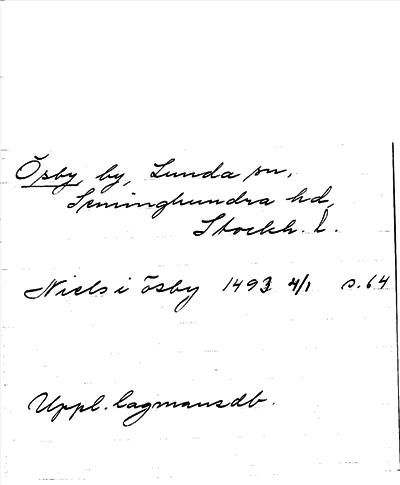 Ösby, by, Lunda sn,
Seminghundra hd,
Stockh. l.
Niels i ösby 1493 4/1 s. 64
Uppl. lagmansdb.